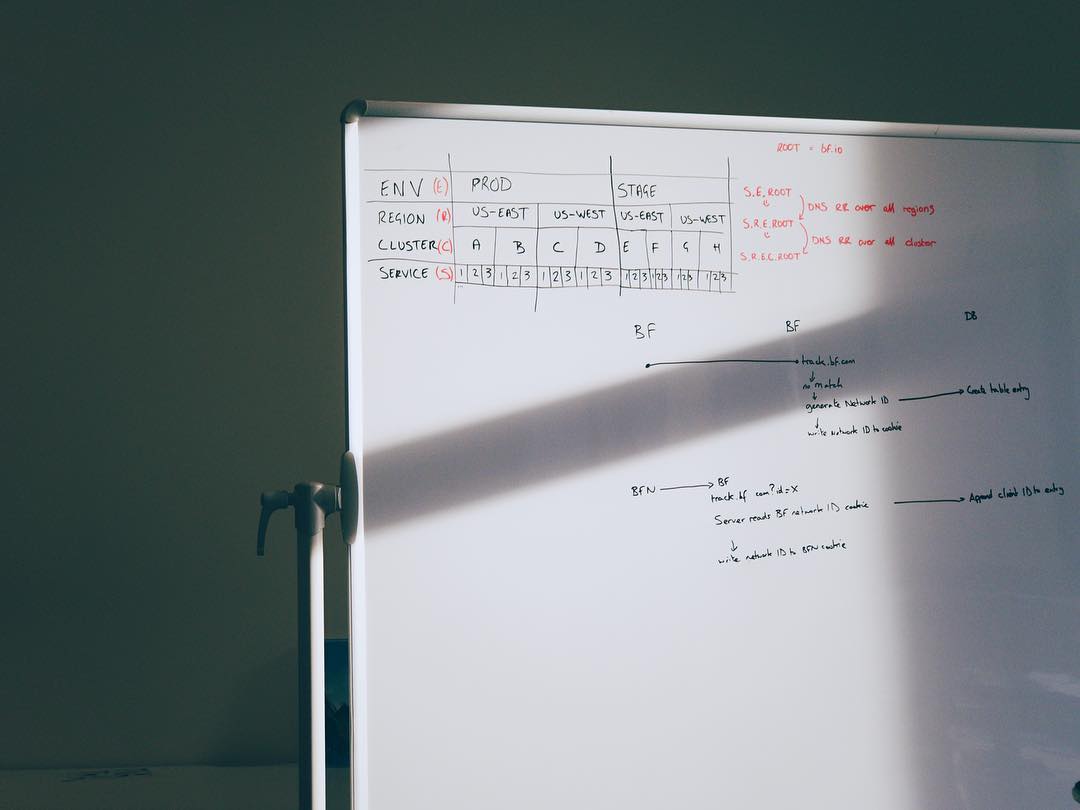 ROOT = bf.io
ENV (E) PROD STAGE
REGION (R) US-EAST US-WEST US-EAST US-WEST
CLUSTER (C) A B C D E F G H
SERVICE (S) 1 2 3 1 2 3 1 2 3 1 2 3 1 2 3 1 2 3 1 2 3 1 2 3
S.E.ROOT
DNS RR over all regions
S.R.E.ROOT
DNS RR over all cluster
S.R.E.C.ROOT
BF BF DB
track.bf.com
no match
generate Network ID Create table entry
write Network ID to cookie
BFN BF
track.bf com?id=X
Server reads BF network ID cookie Append client ID to entry
write network ID to BFN cookie